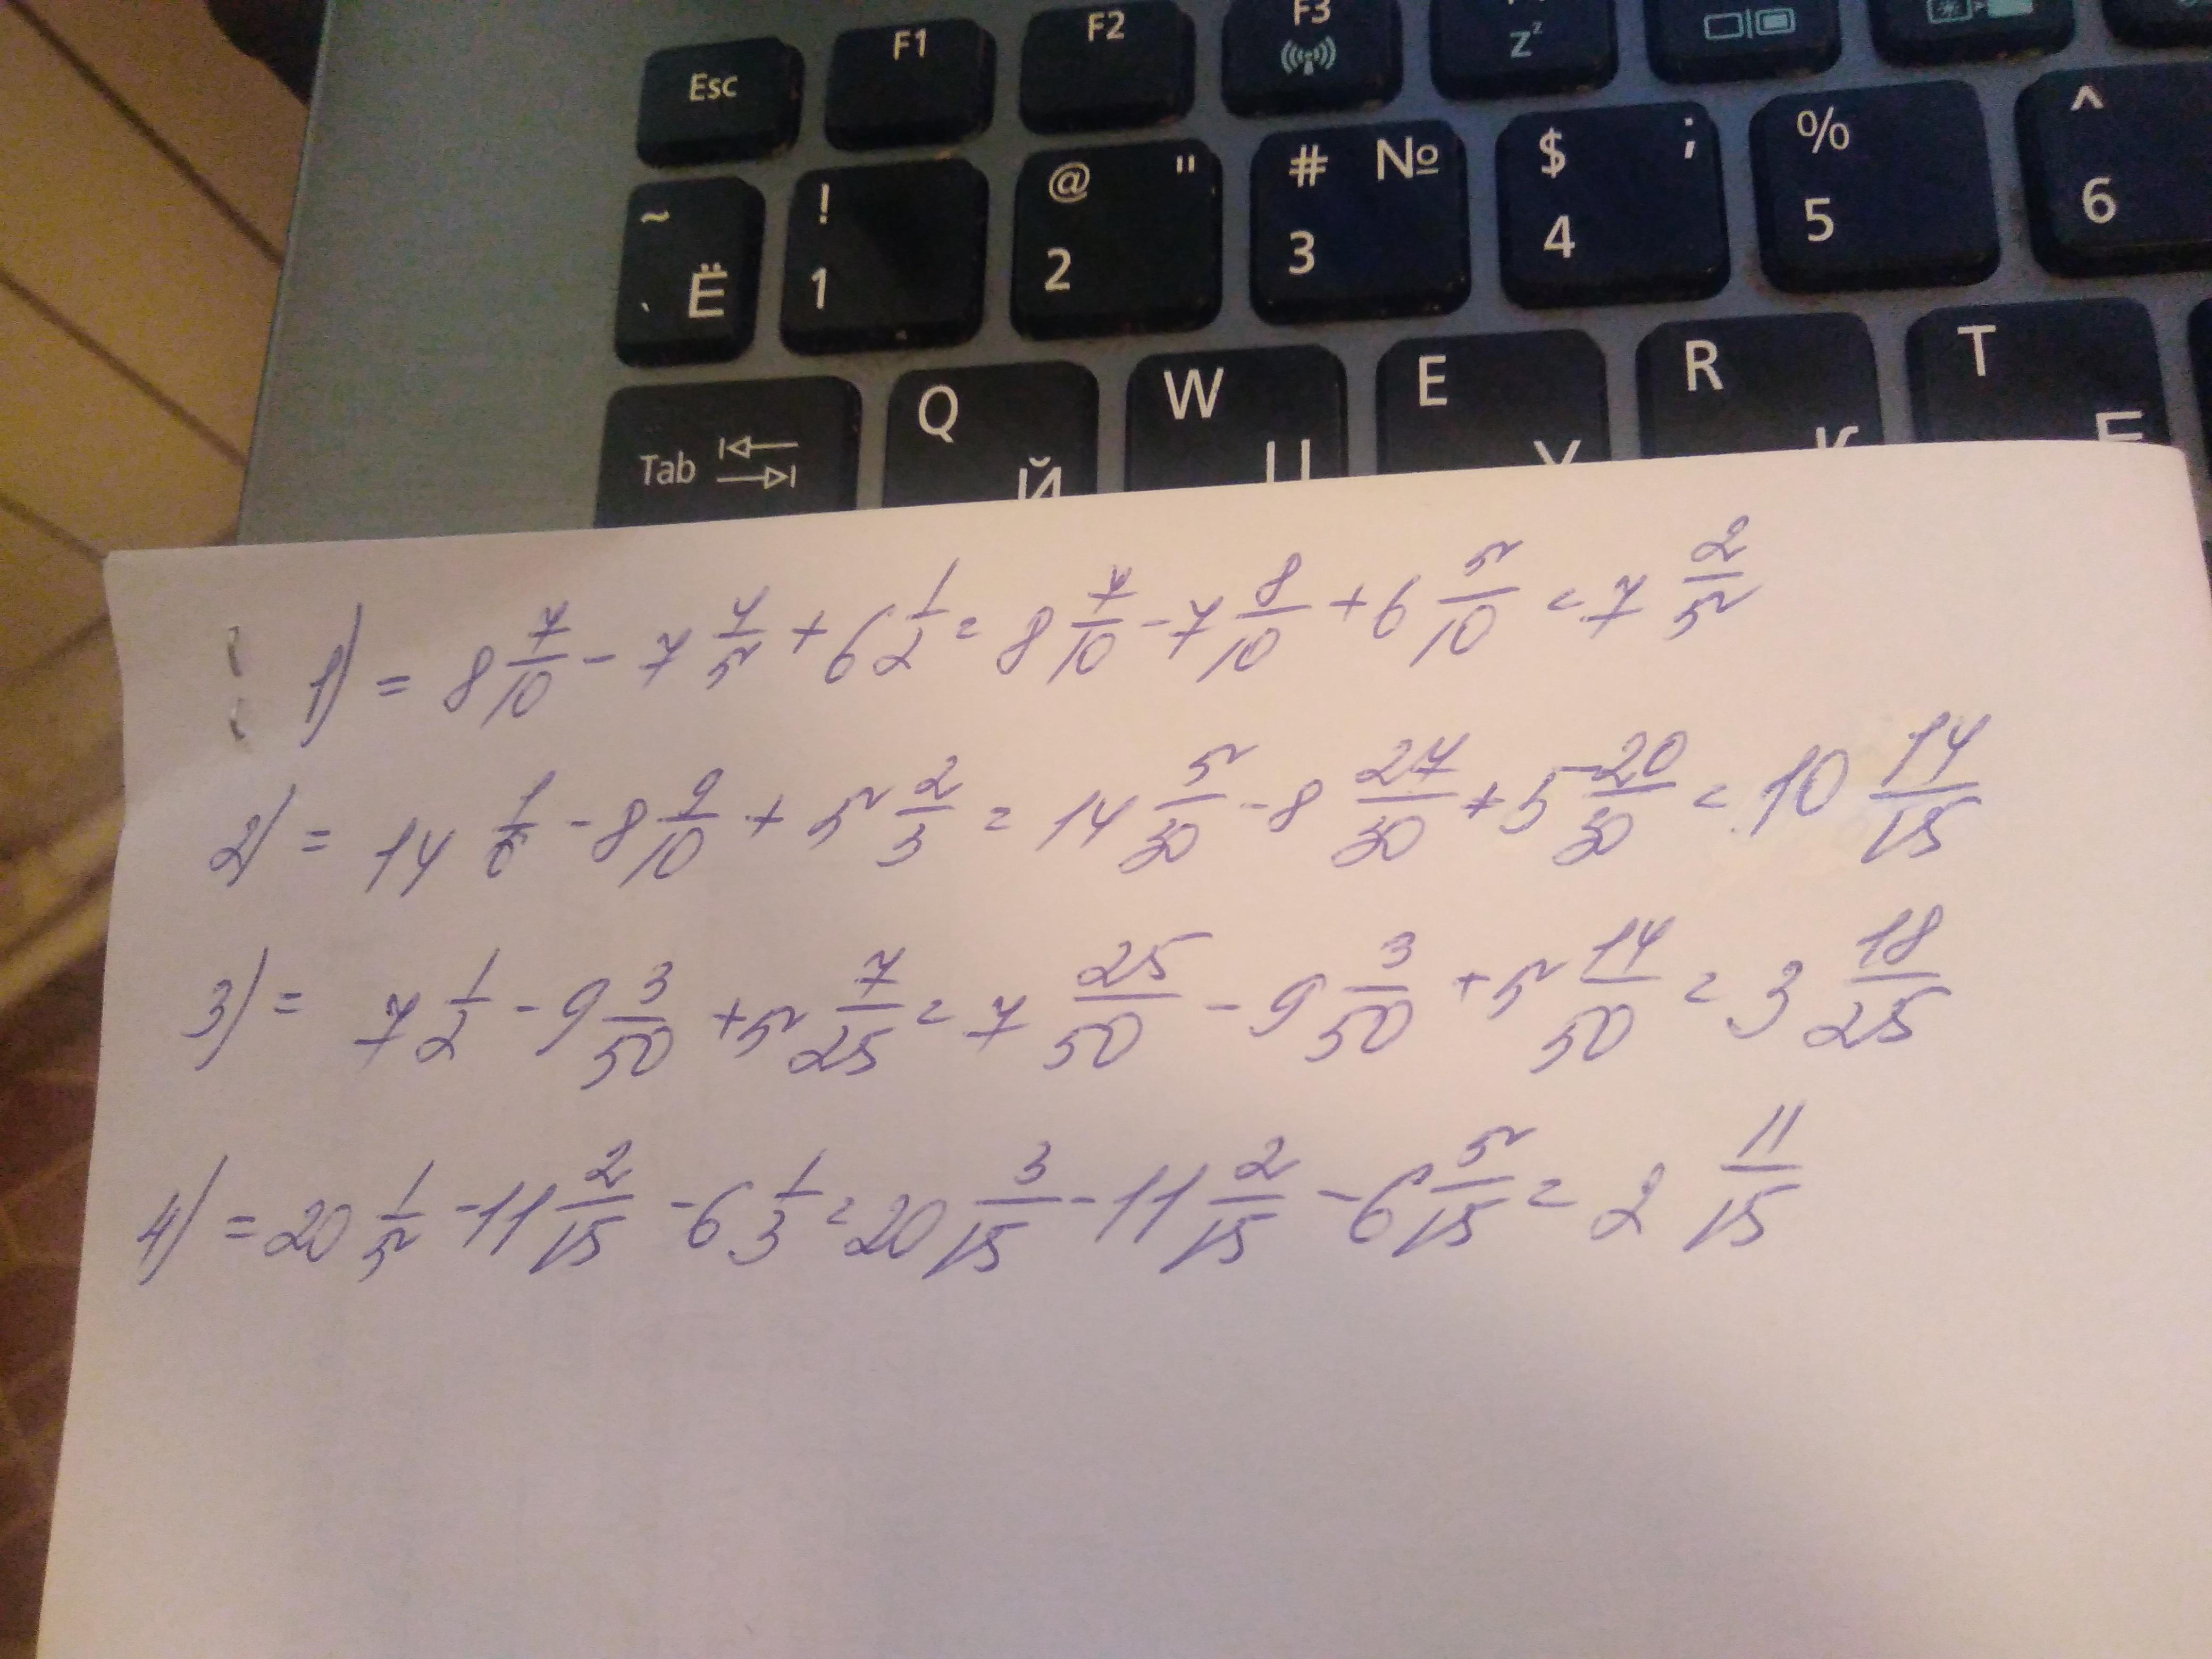 Esc F1 F2 F3 Zz
~ ` Ё ! 1 @ " 2 # № 3 $ ; 4 % 5 ^ 6
Tab Q Й W Ц E У R К T Е
1) = 8 7/10 - 7 4/5 + 6 1/2 = 8 7/10 - 7 8/10 + 6 5/10 = 7 2/5
2) = 14 1/6 - 8 9/10 + 5 2/3 = 14 5/30 - 8 27/30 + 5 20/30 = 10 14/15
3) = 7 1/2 - 9 3/50 + 5 7/25 = 7 25/50 - 9 3/50 + 5 14/50 = 3 18/25
4) = 20 1/5 - 11 2/15 - 6 1/3 = 20 3/15 - 11 2/15 - 6 5/15 = 2 11/15